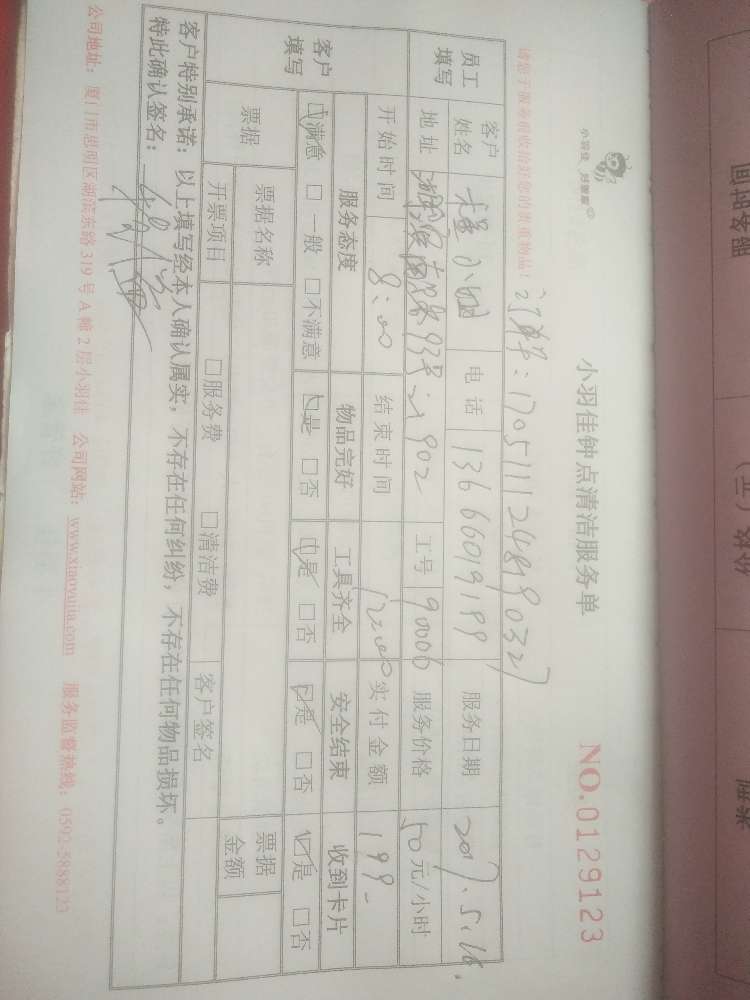 小羽佳 好管家
小羽佳钟点清洁服务单
NO.0129123
请您于服务前收拾好您的贵重物品!
订单号:1705111248190327
员工填写
客户姓名 小姐 电话 13666019199 服务日期 2017.5.16.
地址 93号 902 工号 90006 服务价格 50元/小时
开始时间 8:00 结束时间 12:00 实付金额 199-
客户填写
服务态度 物品完好 工具齐全 安全结束 收到卡片
☑满意 □一般 □不满意 ☑是 □否 ☑是 □否 ☑是 □否 ☑是 □否
票据 票据名称 票据金额
开票项目 □服务费 □清洁费 客户签名
客户特别承诺:以上填写经本人确认属实,不存在任何纠纷,不存在任何物品损坏。
特此确认签名:
公司地址:厦门市思明区湖滨东路319号A幢2层小羽佳 公司网站:www.xiaoyujia.com 服务监督热线:0592-5888123
服务时间
价格(元)
类型